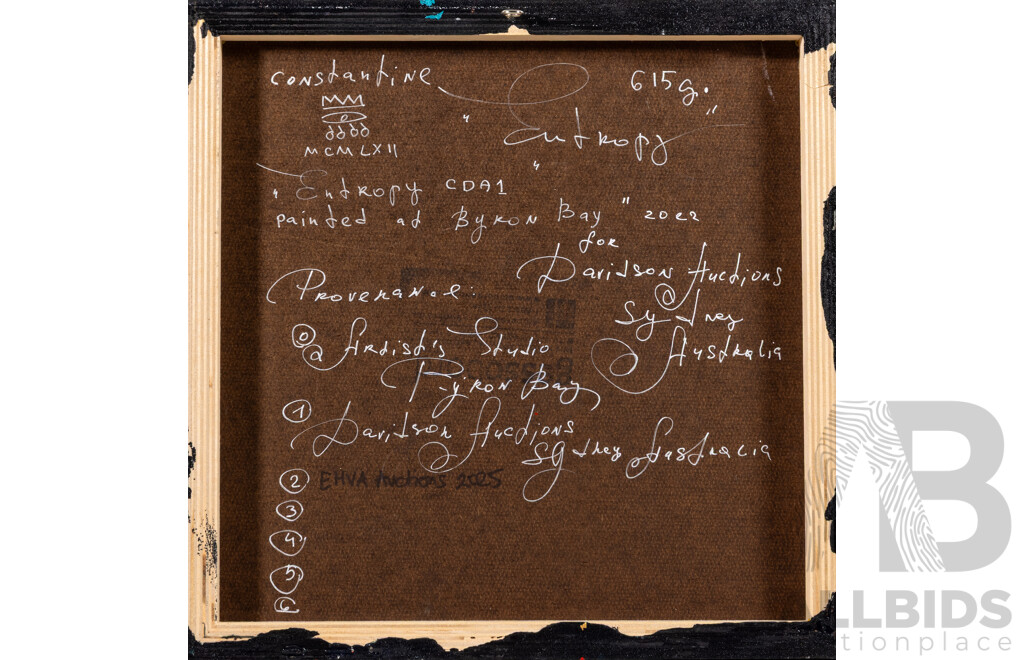 Constantine
615g.
" Entropy "
MCMLXII
" Entropy CDA1
painted at Byron Bay " 2022
for
Davidson Auctions
Sydney
Australia
Provenance:
0 Artist's Studio
Byron Bay
1 Davidson Auctions
Sydney Australia
2 EHVA Auctions 2025
3
4
5
6
LLBIDS
tionplace